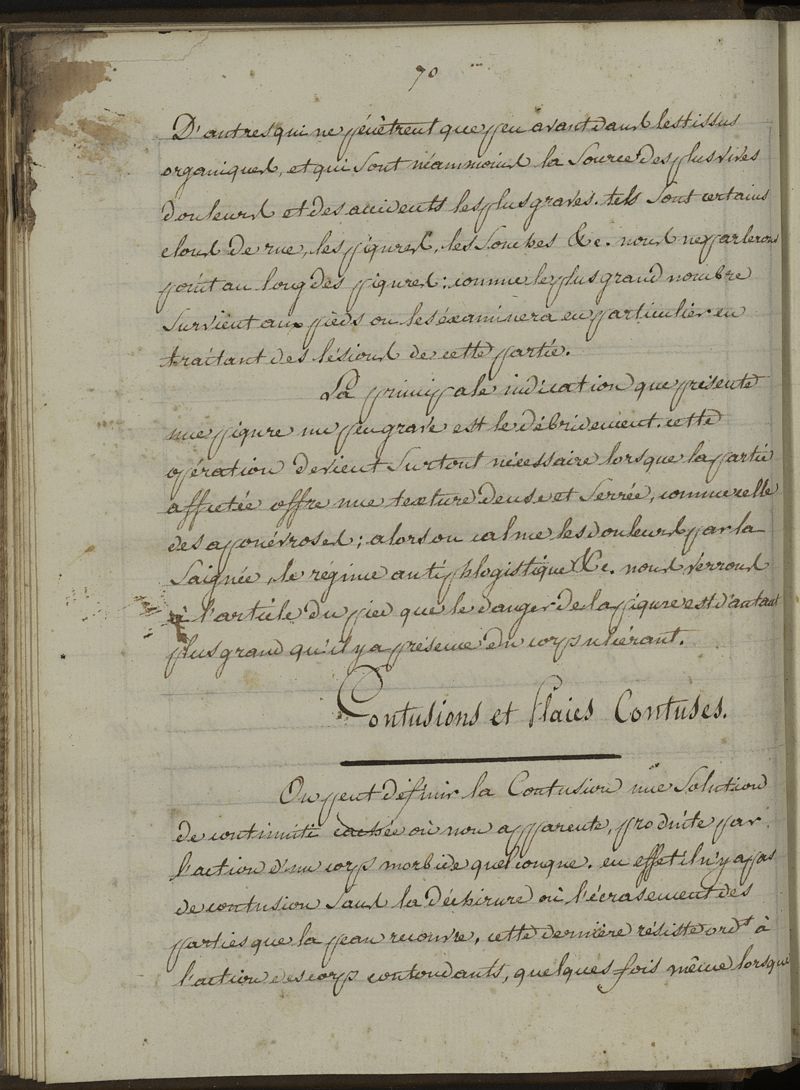 70
D'autres qui ne pénètrent que peu avant dans les tissus
organiques, et qui Sont néammoins la Source des plus vives
douleurs et des accidents les plus graves. tels Sont certains
clous de rue, les piqures, les Souches &c. nous ne parlerons
point au long des piqures: comme le plus grand nombre
Survient aux pieds on les éxaminera en particulier en
traitant des lésions de cette partie.
La principale indication que présente
une piqure un peu grave est le débridement. cette
opération devient Surtout nécessaire lorsque la partie
affectée offre une texture dense et Serrée, comme celle
des aponévroses; alors on calme les douleurs par la
Saignée, le régime antiphlogistique &c. nous verrons
à l'article du pied que le danger de la piqure est d'autant
plus grand qu'il y a présence du corps vulnérant.
Contusions et Plaies Contuses.
On peut définir la Contusion une Solution
de continuité cachée où non apparente, produite par
l'action d'un corps morbide quelconque. en effet il n'y a pas
de contusion Sans la déchirure où l'écrasement des
parties que la peau recouvre, cette dernière résiste ordt à
l'action des corps contondants, quelques fois même lorsque